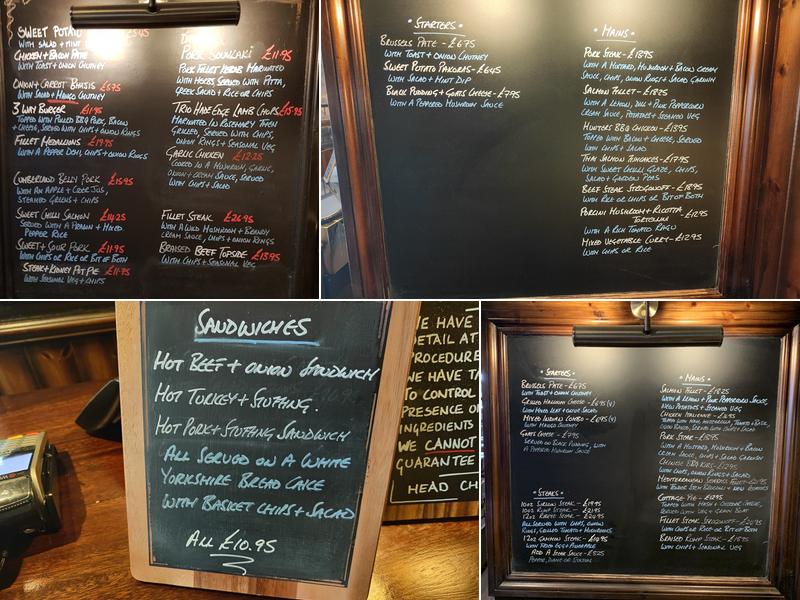 SWEET POTATO
WITH SALAD + MINT
CHICKEN + BACON PATE
WITH TOAST + ONION CHUTNEY
ONION + CARROT BHAJIS £5.75
WITH SALAD + MANGO CHUTNEY
3 WAY BURGER £11.95
TOPPED WITH PULLED BBQ PORK, BACON
+ CHEESE, SERVED WITH CHIPS + ONION RINGS
FILLET MEDALLIONS £19.95
WITH A PEPPER DEMI, CHIPS + ONION RINGS
CUMBERLAND BELLY PORK £15.95
WITH AN APPLE + CIDER JUS,
STEAMED GREENS + CHIPS
SWEET CHILLI SALMON £14.25
SERVED WITH A PRAWN + MIXED
PEPPER RICE
SWEET + SOUR PORK £11.95
WITH CHIPS OR RICE OR BIT OF BOTH
STEAK + KIDNEY POT PIE £11.75
WITH SEASONAL VEG + CHIPS
PORK SOUVLAKI £11.95
PORK FILLET KEBAB MARINATED
WITH HERBS SERVED WITH PITTA,
GREEK SALAD + RICE OR CHIPS
TRIO HADE EDGE LAMB CHOPS £15.95
MARINATED IN ROSEMARY THEN
GRILLED, SERVED WITH CHIPS,
ONION RINGS + SEASONAL VEG
GARLIC CHICKEN £12.25
COOKED IN A MUSHROOM, GARLIC,
ONION + CREAM SAUCE, SERVED
WITH CHIPS + SALAD
FILLET STEAK £26.95
WITH A WILD MUSHROOM + BRANDY
CREAM SAUCE, CHIPS + ONION RINGS
BRAISED BEEF TOPSIDE £13.95
WITH CHIPS + SEASONAL VEG
• STARTERS •
BRUSSELS PATE - £6.75
WITH TOAST + ONION CHUTNEY
SWEET POTATO PAKORAS - £6.45
WITH SALAD + MINT DIP
BLACK PUDDING + GOATS CHEESE - £7.95
WITH A PEPPERED MUSHROOM SAUCE
• MAINS •
PORK STEAK - £18.95
WITH A MUSTARD, MUSHROOM + BACON CREAM
SAUCE, CHIPS, ONION RINGS + SALAD GARNISH
SALMON FILLET - £18.25
WITH A LEMON, DILL + PINK PEPPERCORN
CREAM SAUCE, POTATOES + STEAMED VEG
HUNTERS BBQ CHICKEN - £13.95
TOPPED WITH BACON + CHEESE, SERVED
WITH CHIPS + SALAD
THAI SALMON FISHCAKES - £17.95
WITH SWEET CHILLI GLAZE, CHIPS,
SALAD + GARDEN PEAS
BEEF STEAK STROGONOFF - £18.95
WITH RICE OR CHIPS OR BIT OF BOTH
PORCINI MUSHROOM + RICOTTA
TORTELLINI - £12.95
WITH A RICH TOMATO RAGU
MIXED VEGETABLE CURRY - £12.95
WITH CHIPS OR RICE
SANDWICHES
HOT BEEF + ONION SANDWICH
HOT TURKEY + STUFFING.
HOT PORK + STUFFING SANDWICH
ALL SERVED ON A WHITE
YORKSHIRE BREAD CAKE
WITH BASKET CHIPS + SALAD
ALL £10.95
WE HAVE
DETAIL AT
PROCEDURE
WE HAVE TA
TO CONTROL
PRESENCE O
INGREDIENTS
WE CANNOT
GUARANTEE
HEAD CH
• STARTERS •
BRUSSELS PATE - £6.75
WITH TOAST + ONION CHUTNEY
GRILLED HALLOUMI CHEESE - £6.95 (V)
WITH MIXED LEAF + ONION SALAD
MIXED INDIAN COMBO - £6.95 (V)
WITH MANGO CHUTNEY
GOATS CHEESE - £7.95
SERVED ON BLACK PUDDING, WITH
A PEPPERED MUSHROOM SAUCE
• STEAKS •
10OZ SIRLOIN STEAK - £19.95
10OZ RUMP STEAK - £21.95
12OZ RIBEYE STEAK - £24.95
ALL SERVED WITH CHIPS, ONION
RINGS, GRILLED TOMATO + MUSHROOMS
12OZ GAMMON STEAK - £14.95
WITH FRIED EGG + PINEAPPLE
ADD A STEAK SAUCE - £3.25
PEPPER, DIANE OR STILTON
• MAINS •
SALMON FILLET - £18.25
WITH A LEMON + PINK PEPPERCORN SAUCE,
NEW POTATOES + STEAMED VEG
CHICKEN ITALIENNE - £14.95
PORK STEAK - £18.95
WITH A MUSTARD, MUSHROOM + BACON
CREAM SAUCE, CHIPS + SALAD GARNISH
CHINESE BBQ RIBS - £17.95
WITH CHIPS, ONION RINGS + SALAD
MEDITERRANEAN SEABASS FILLET -
COTTAGE PIE - £12.95
TOPPED WITH MASH + CHEESE,
SERVED WITH VEG + GRAVY BOAT
FILLET STEAK STROGONOFF - £20.95
WITH CHIPS OR RICE OR BIT OF BOTH
BRAISED RUMP STEAK - £18.95
WITH CHIPS + SEASONAL VEG